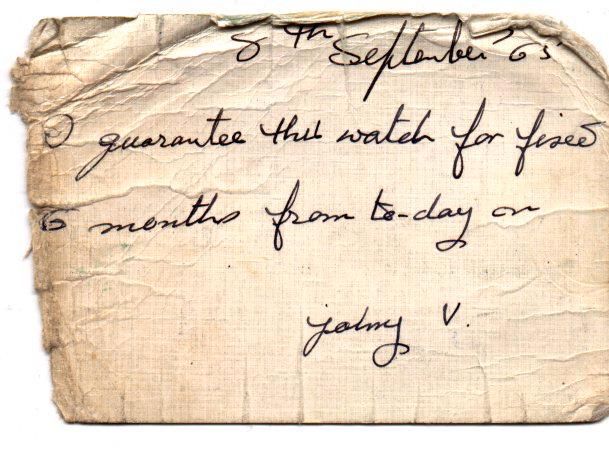 8th September '65
I guarantee this watch for
6 months from to-day on
johny V.